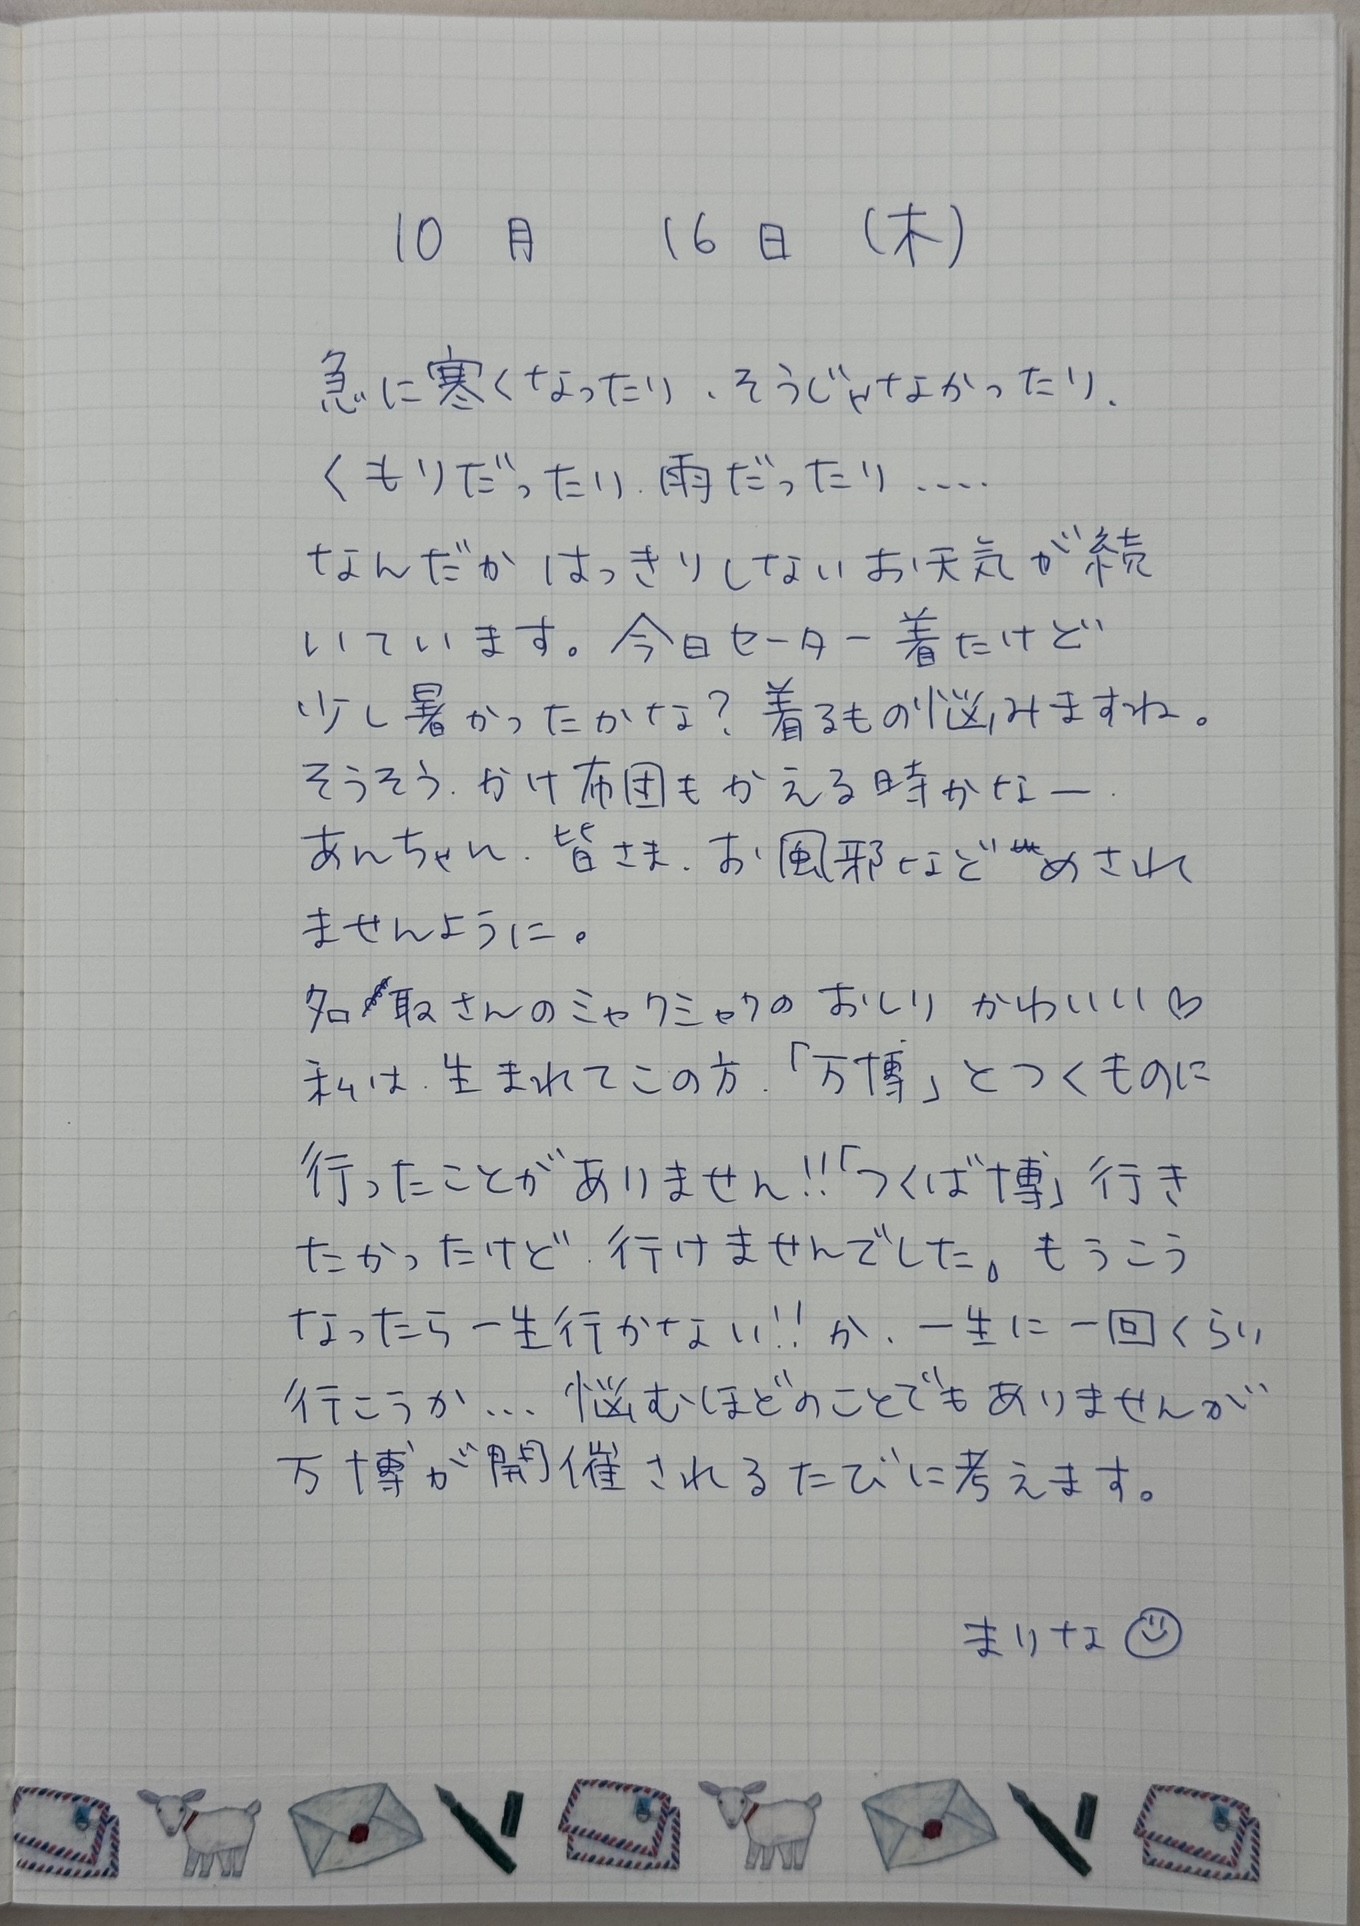 10月 16日 (木)
急に寒くなったり、そうじゃなかったり、
くもりだったり、雨だったり.....
なんだかはっきりしないお天気が続
いています。今日セーター着たけど
少し暑かったかな？着るもの悩みますね。
そうそう、かけ布団もかえる時かなー.
あんちゃん、皆さま、お風邪などめされ
ませんように。
名取さんのミャクミャクのおしり かわいい♡
私は、生まれてこの方、「万博」とつくものに
行ったことがありません!!「つくば博」行き
たかったけど、行けませんでした。もうこう
なったら一生行かない!!か、一生に一回くらい
行こうか... 悩むほどのことでもありませんが
万博が開催されるたびに考えます。
まりな☺